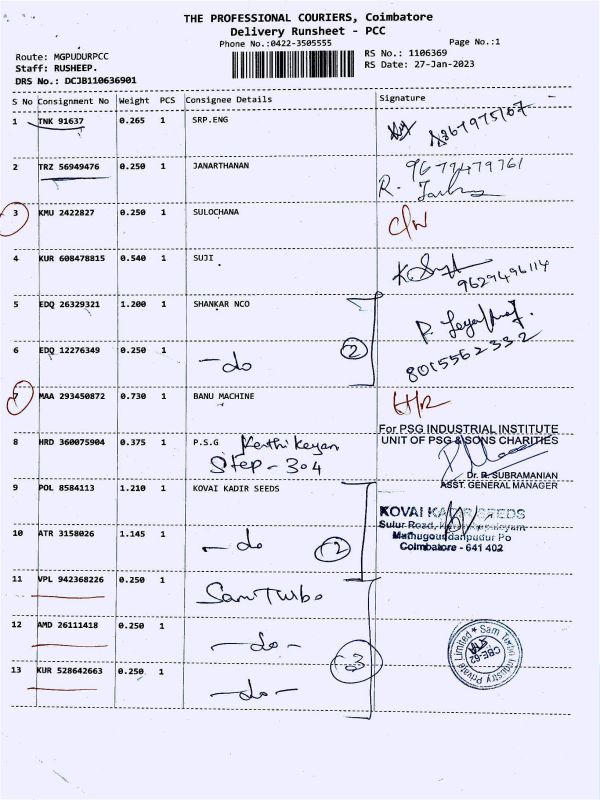 THE PROFESSIONAL COURIERS, Coimbatore
Delivery Runsheet - PCC
Phone No.:0422-3505555
Page No.:1
Route: MGPUDURPCC
RS No.: 1106369
Staff: RUSHEEP.
RS Date: 27-Jan-2023
DRS No.: DCJB110636901
S No Consignment No Weight PCS Consignee Details Signature
1 TNK 91637 0.265 1 SRP.ENG
2 TRZ 56949476 0.250 1 JANARTHANAN 9679479761
R.
3 KMU 2422827 0.250 1 SULOCHANA
4 KUR 608478815 0.540 1 SUJI
9629496114
5 EDQ 26329321 1.200 1 SHANKAR NCO
6 EDQ 12276349 0.250 1 - do 2 8015562332
7 MAA 293450872 0.730 1 BANU MACHINE
For PSG INDUSTRIAL INSTITUTE
UNIT OF PSG & SONS CHARITIES
8 HRD 360075904 0.375 1 P.S.G Kerthi Keyan
Step - 304
Dr. R. SUBRAMANIAN
ASST. GENERAL MANAGER
9 POL 8584113 1.210 1 KOVAI KADIR SEEDS
KOVAI KADIR SEEDS
Sulur Road,
10 ATR 3158026 1.145 1 - do 2
Mathugoundanpudur Po
Coimbatore - 641 402
11 VPL 942368226 0.250 1 Sam Turbo
12 AMD 26111418 0.250 1 - do - 3
13 KUR 528642663 0.250 1 - do -
Sam Turbo Industry Private Limited
CBE-62